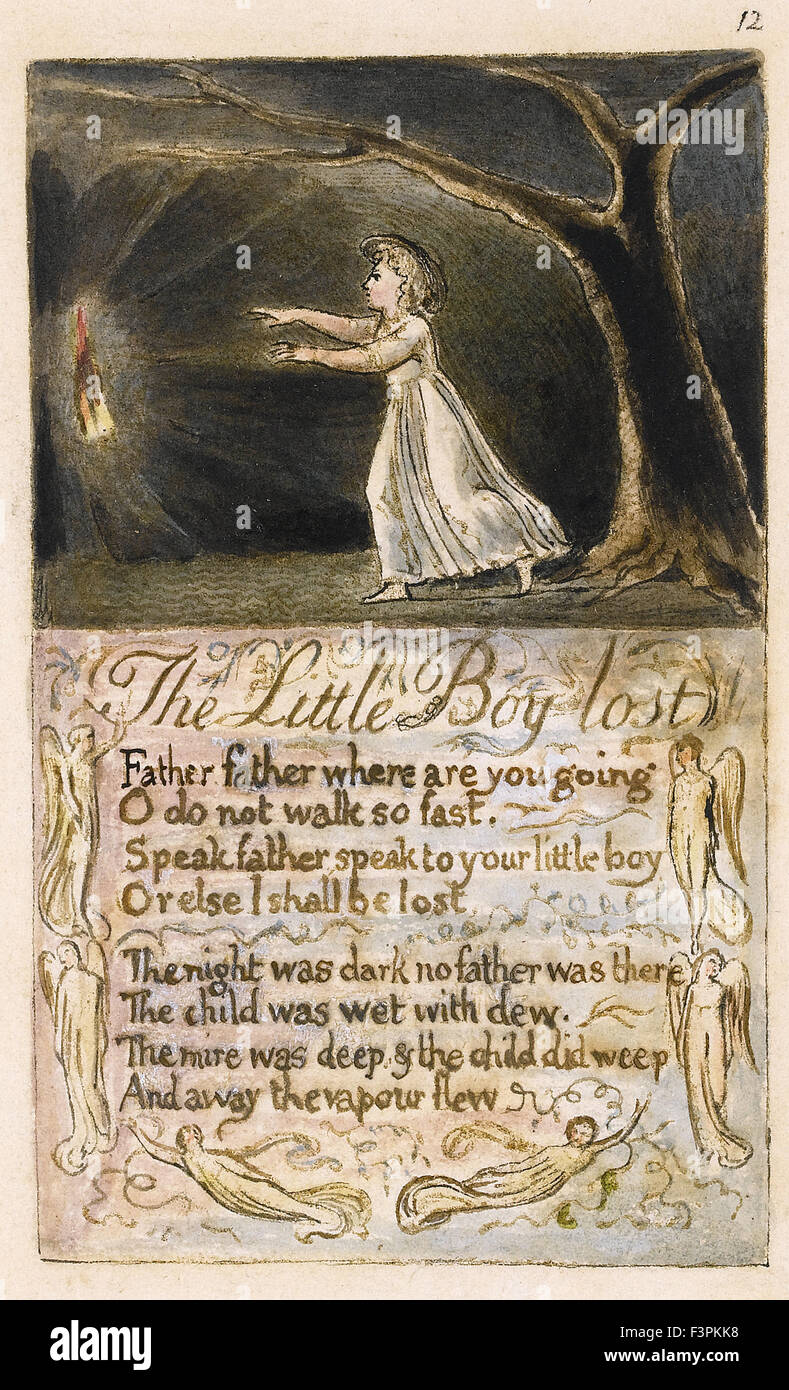 12
The Little Boy lost
Father father where are you going
O do not walk so fast.
Speak father speak to your little boy
Or else I shall be lost
The night was dark no father was there
The child was wet with dew.
The mire was deep & the child did weep
And away the vapour flew
a
a
a
a
a
a
a
alamy stock photo
F3PKK8
www.alamy.com